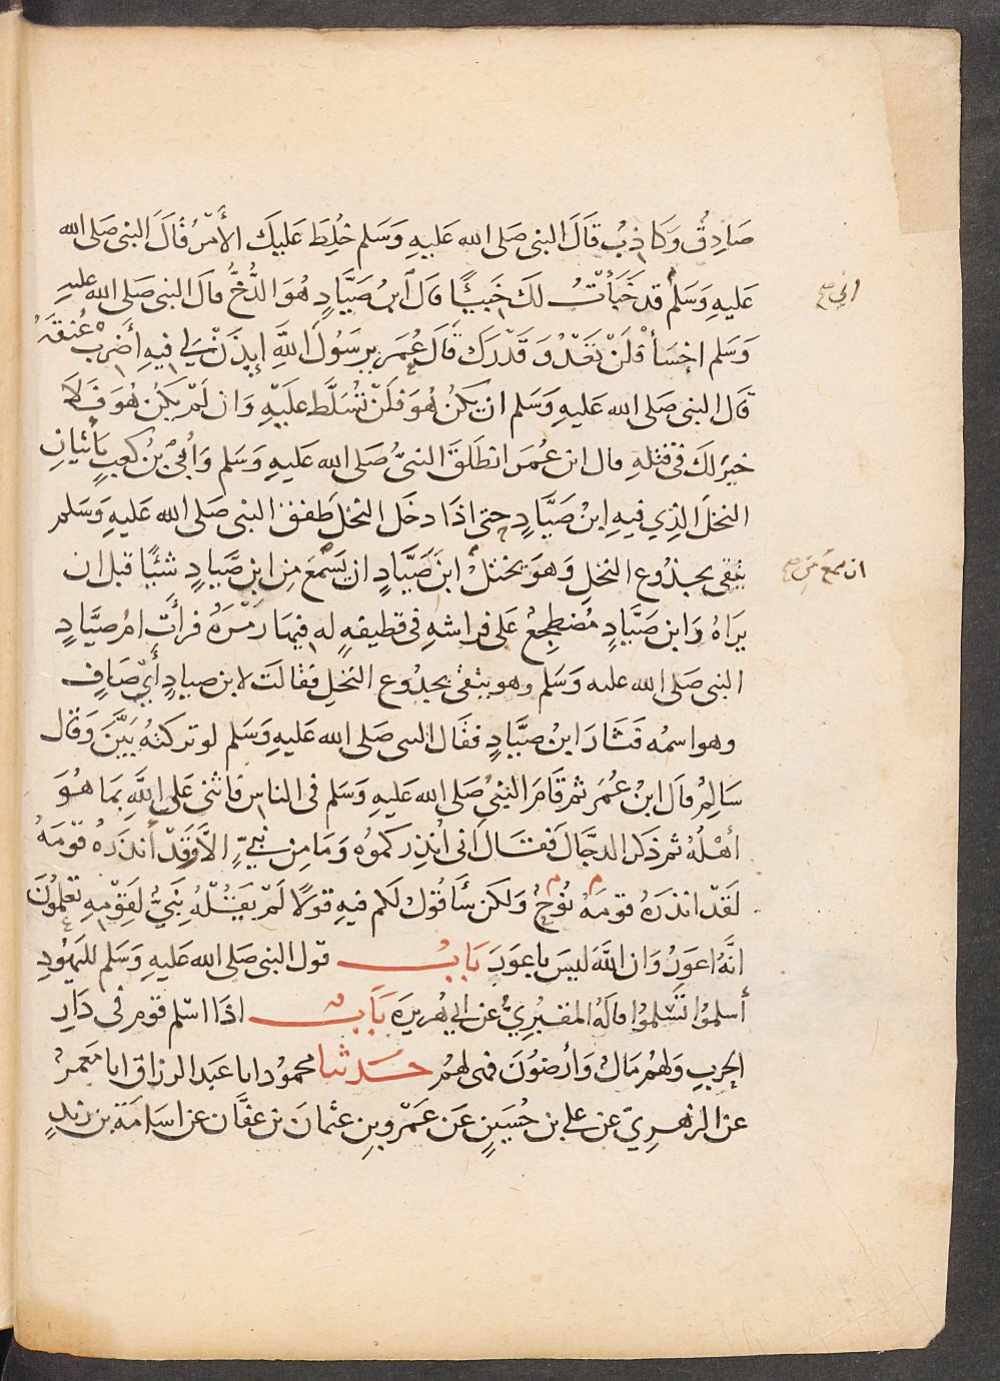 صَادِقٌ وَكَاذِبٌ قَالَ النبى صَلى الله عَليهِ وَسَلم خُلِطَ عَليكَ الأَمْرُ قَالَ النبى صَلى الله
عَليهِ وَسَلم قد خَبَأْتُ لكَ خَبيْئًا قَالَ ابنُ صَيَّادٍ هُوَ الدُّخُّ قال النبى صَلى الله عليهِ
وَسَلم اخسَأ فلَنْ تَعْدُوَ قَدْرَكَ قَالَ عُمَر يرسُولَ اللهِ إيذَنْ لي فيهِ أَضرِبْ عُنقَهُ
قَال النبى صَلى الله عَليهِ وَسَلم ان يكنْ هُوَ فلَنْ تُسَلَّط عَليْهِ وَان لَمْ يَكُن هُوَ فَلاَ
خيرَ لكَ فى قتلهِ قال ابن عُمَر انطَلقَ النبىُّ صَلى الله عَليهِ وَسَلم وَأُبىُّ بنُ كعبٍ يَأتيَانِ
النخلَ الذِي فيهِ ابنُ صَيَّادٍ حتى اذَا دخَل النخلَ طَفقَ النبى صَلى الله عَليهِ وَسَلم
يتقى بجذُوع النخلِ وَهوَ يختلُ ابنَ صَيَّادٍ ان يَسْمَعَ مِن ابنِ صَّيادٍ شيئًا قبل ان
يرَاهُ وَابن صَيَّادٍ مُضطجعٌ عَلى فراشهِ فى قطيفهٍ له فيهَا رَمْزَهٌ فرأَتِ امُ صيَّادٍ
النبى صَلى الله عليه وَسَلم وهو يتقى بجذُوع النخلِ فقالَت لابن صيادٍ أَيْ صَافِ
وهو اسمُه فَثَارَ ابنُ صَيَّادٍ فقَال النبى صَلى الله عَليهِ وَسَلم لو تركتهُ بَيَّنَ وَقال
سَالِمٌ قالَ ابنُ عُمَر ثم قَامَ النبيُ صَلى الله عَليهِ وَسَلم فى الناس فاثنى عَلى اللهِ بمَا هُوَ
أَهْلُهُ ثم ذكر الدجَّالَ فقَال انى أُنذِركموُه وَمَا مِن نبيٍّ الاَّ وَقَدْ أَنذرَهُ قوْمَهُ
لَقَدْ انذرَهُ قومَهُ نُوحٌ وَلكن سَأقُول لكم فيهِ قولًا لَمْ يَقُلْهُ نَبيٌّ لقَوْمِهِ تعلمُونَ
انَّهُ اعوَرُ وَان اللهَ ليسَ باعوَرَ بَابُ قول النبى صَلى الله عَليهِ وَسَلم لليَهُودِ
أسلموُا تَسْلموُا قالَهُ المقبُرِيُّ عن ابي هُريرَة بَابُ اذَا اسْلم قوم فى دَارِ
الحربِ وَلهُمْ مَالٌ وَأَرضوُنَ فهى لهُم حَدثنا محموُد انا عَبد الرزاق انا مَعمرٌ
عن الزهرِيّ عن علي بن حُسَينٍ عَن عَمْرو بنِ عثمانَ بن عفَّان عن اسَامَة بن زيدٍ